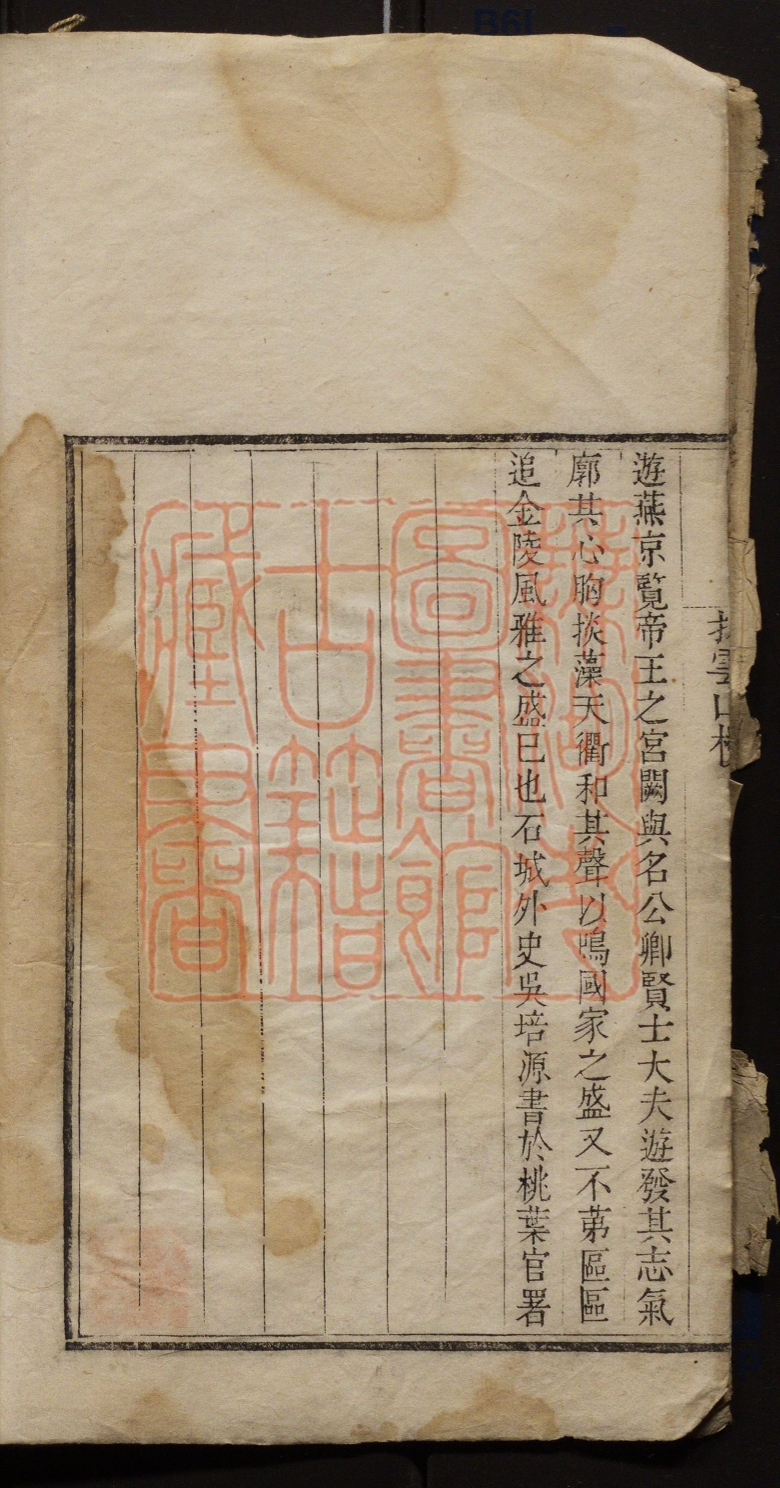 遊燕京覽帝王之宮闕與名公卿賢士大夫遊發其志氣
廓其心胸掞藻天衢和其聲以鳴國家之盛又不苐區區
追金陵風雅之盛已也石城外史吳培源書於桃葉官署
雲山
圖書館
古籍
藏書